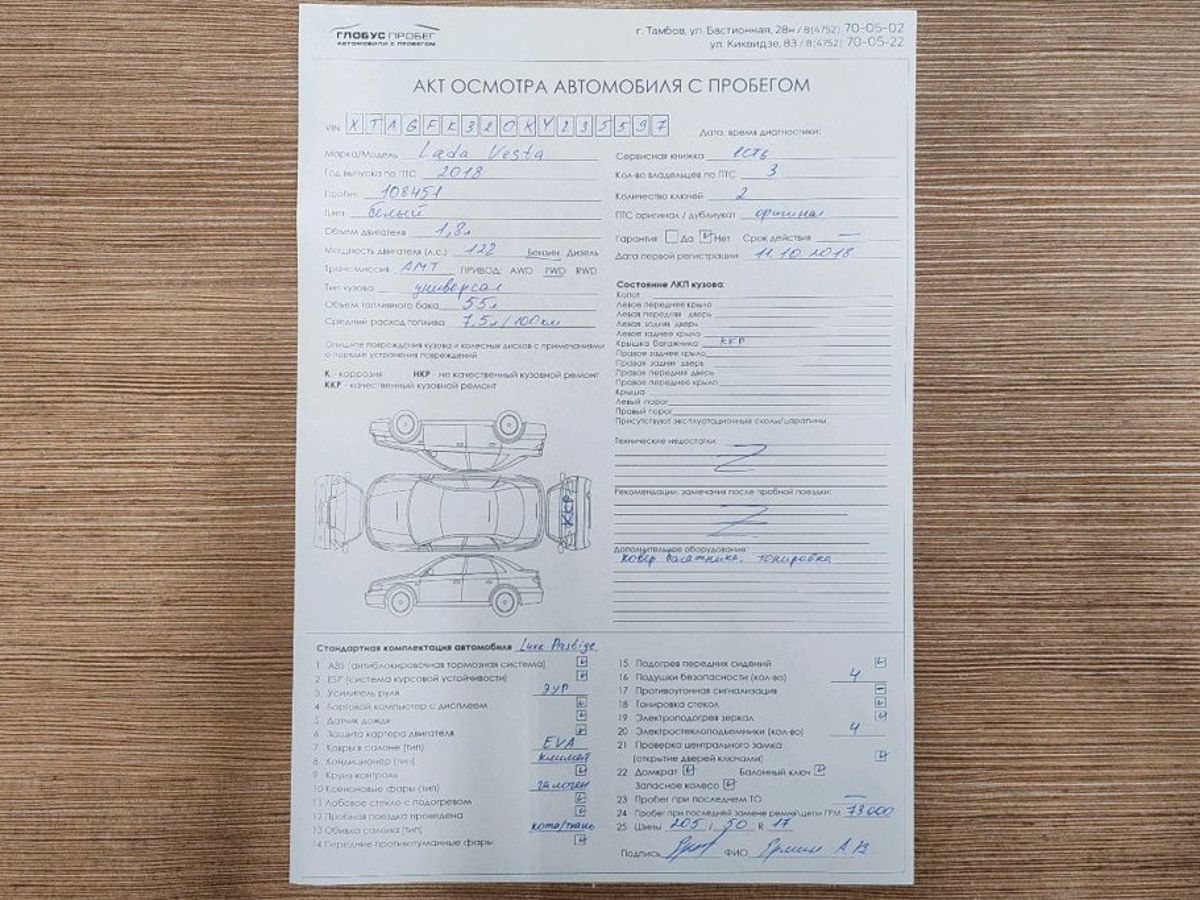 ГЛОБУС ПРОБЕГ
АВТОМОБИЛИ С ПРОБЕГОМ
г. Тамбов, ул. Бастионная, 28н / 8(4752) 70-05-02
ул. Киквидзе, 83 / 8(4752) 70-05-22
АКТ ОСМОТРА АВТОМОБИЛЯ С ПРОБЕГОМ
VIN XTAGFK320KY235597
Марка/Модель Lada Vesta
Год выпуска по ПТС 2018
Пробег 108451
Цвет белый
Объем двигателя 1,8л
Мощность двигателя (л.с.) 122 Бензин Дизель
Трансмиссия АМТ ПРИВОД: AWD FWD RWD
Тип кузова универсал
Объем топливного бака 55л
Средний расход топлива 7,5л/100км
Опишите повреждения кузова и колесных дисков с примечаниями
о порядке устранения повреждений
К - коррозия НКР - не качественный кузовной ремонт
ККР - качественный кузовной ремонт
ККР
Дата, время диагностики:
Сервисная книжка есть
Кол-во владельцев по ПТС 3
Количество ключей 2
ПТС оригинал / дубликат оригинал
Гарантия Да Нет Срок действия —
Дата первой регистрации 11.10.2018
Состояние ЛКП кузова:
Капот
Левое переднее крыло
Левая передняя дверь
Левая задняя дверь
Левое заднее крыло
Крышка багажника ККР
Правое заднее крыло
Правая задняя дверь
Правая передняя дверь
Правое переднее крыло
Крыша
Левый порог
Правый порог
Присутствуют эксплуатационные сколы/царапины
Технические недостатки:
Z
Рекомендации, замечания после пробной поездки:
Z
Дополнительное оборудование:
ковер багажника, тонировка
Стандартная комплектация автомобиля Luxe Prestige
1 ABS (антиблокировочная тормозная система)
2 ESP (система курсовой устойчивости)
3 Усилитель руля ЭУР
4 Бортовой компьютер с дисплеем
5 Датчик дождя
6 Защита картера двигателя
7 Ковры в салоне (тип) EVA
8 Кондиционер (тип) климат
9 Круиз-контроль
10 Ксеноновые фары (тип) галоген
11 Лобовое стекло с подогревом
12 Пробная поездка проведена
13 Обивка салона (тип) кожа/ткань
14 Передние противотуманные фары
15 Подогрев передних сидений
16 Подушки безопасности (кол-во) 4
17 Противоугонная сигнализация —
18 Тонировка стекол
19 Электроподогрев зеркал
20 Электростеклоподъемники (кол-во) 4
21 Проверка центрального замка
(открытие дверей ключами)
22 Домкрат Балонный ключ
Запасное колесо
23 Пробег при последнем ТО —
24 Пробег при последней замене ремня/цепи ГРМ 73000
25 Шины 205 / 50 R 17
Подпись ФИО Ермин А.В